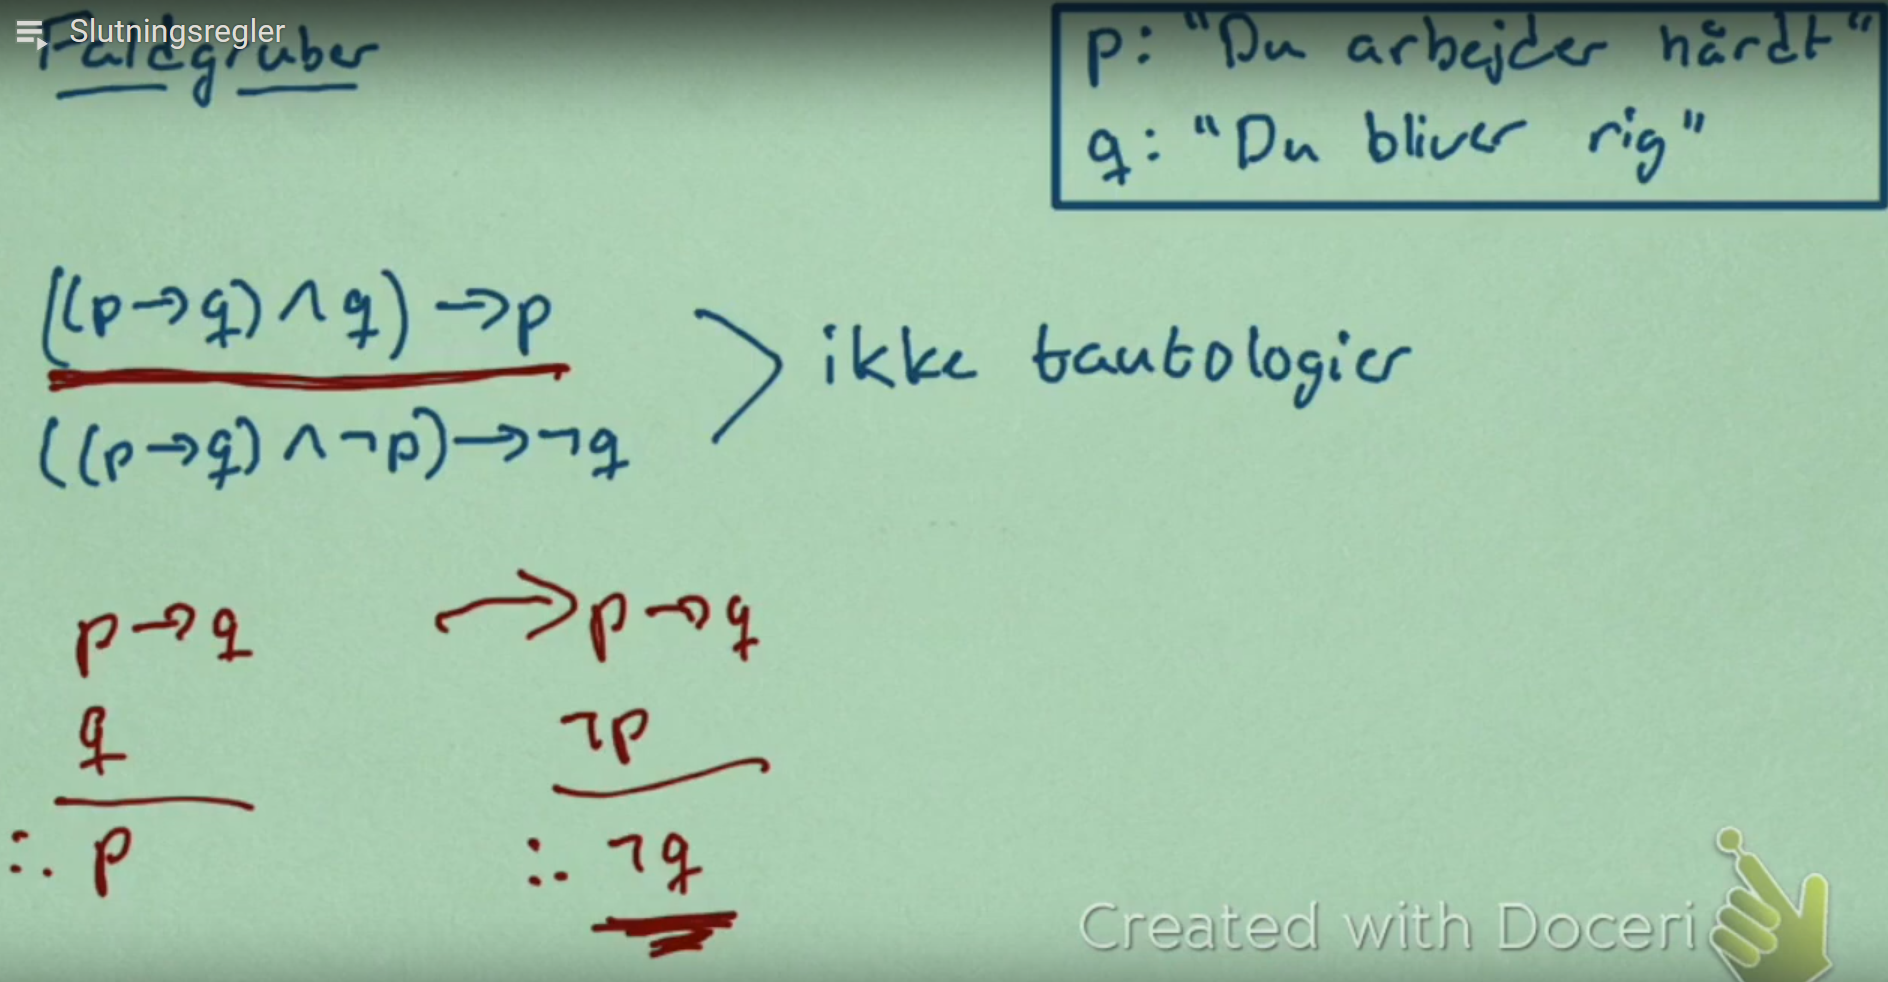 Slutningsregler
Faldgruber
p: "Du arbejder hårdt"
q: "Du bliver rig"
((p→q)∧q)→p
((p→q)∧¬p)→¬q
ikke tautologier
p→q
q
∴ p
→ p→q
¬p
∴ ¬q
Created with Doceri